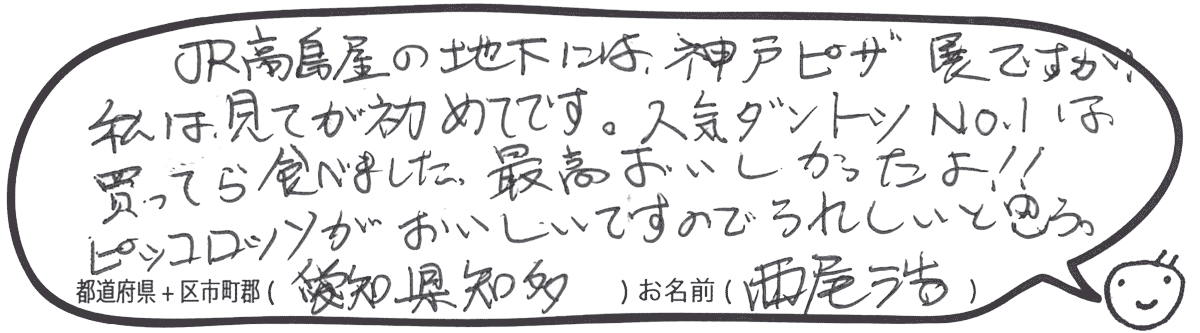 JR高島屋の地下には、神戸ピザ展ですが、
私は、見てが初めてです。人気ダントツNO.1は
買ってら食べました。最高おいしかったよ!!
ピッコロッソがおいしいですのでうれしいと思う。
都道府県+区市町郡(愛知県知多)お名前(西尾浩)